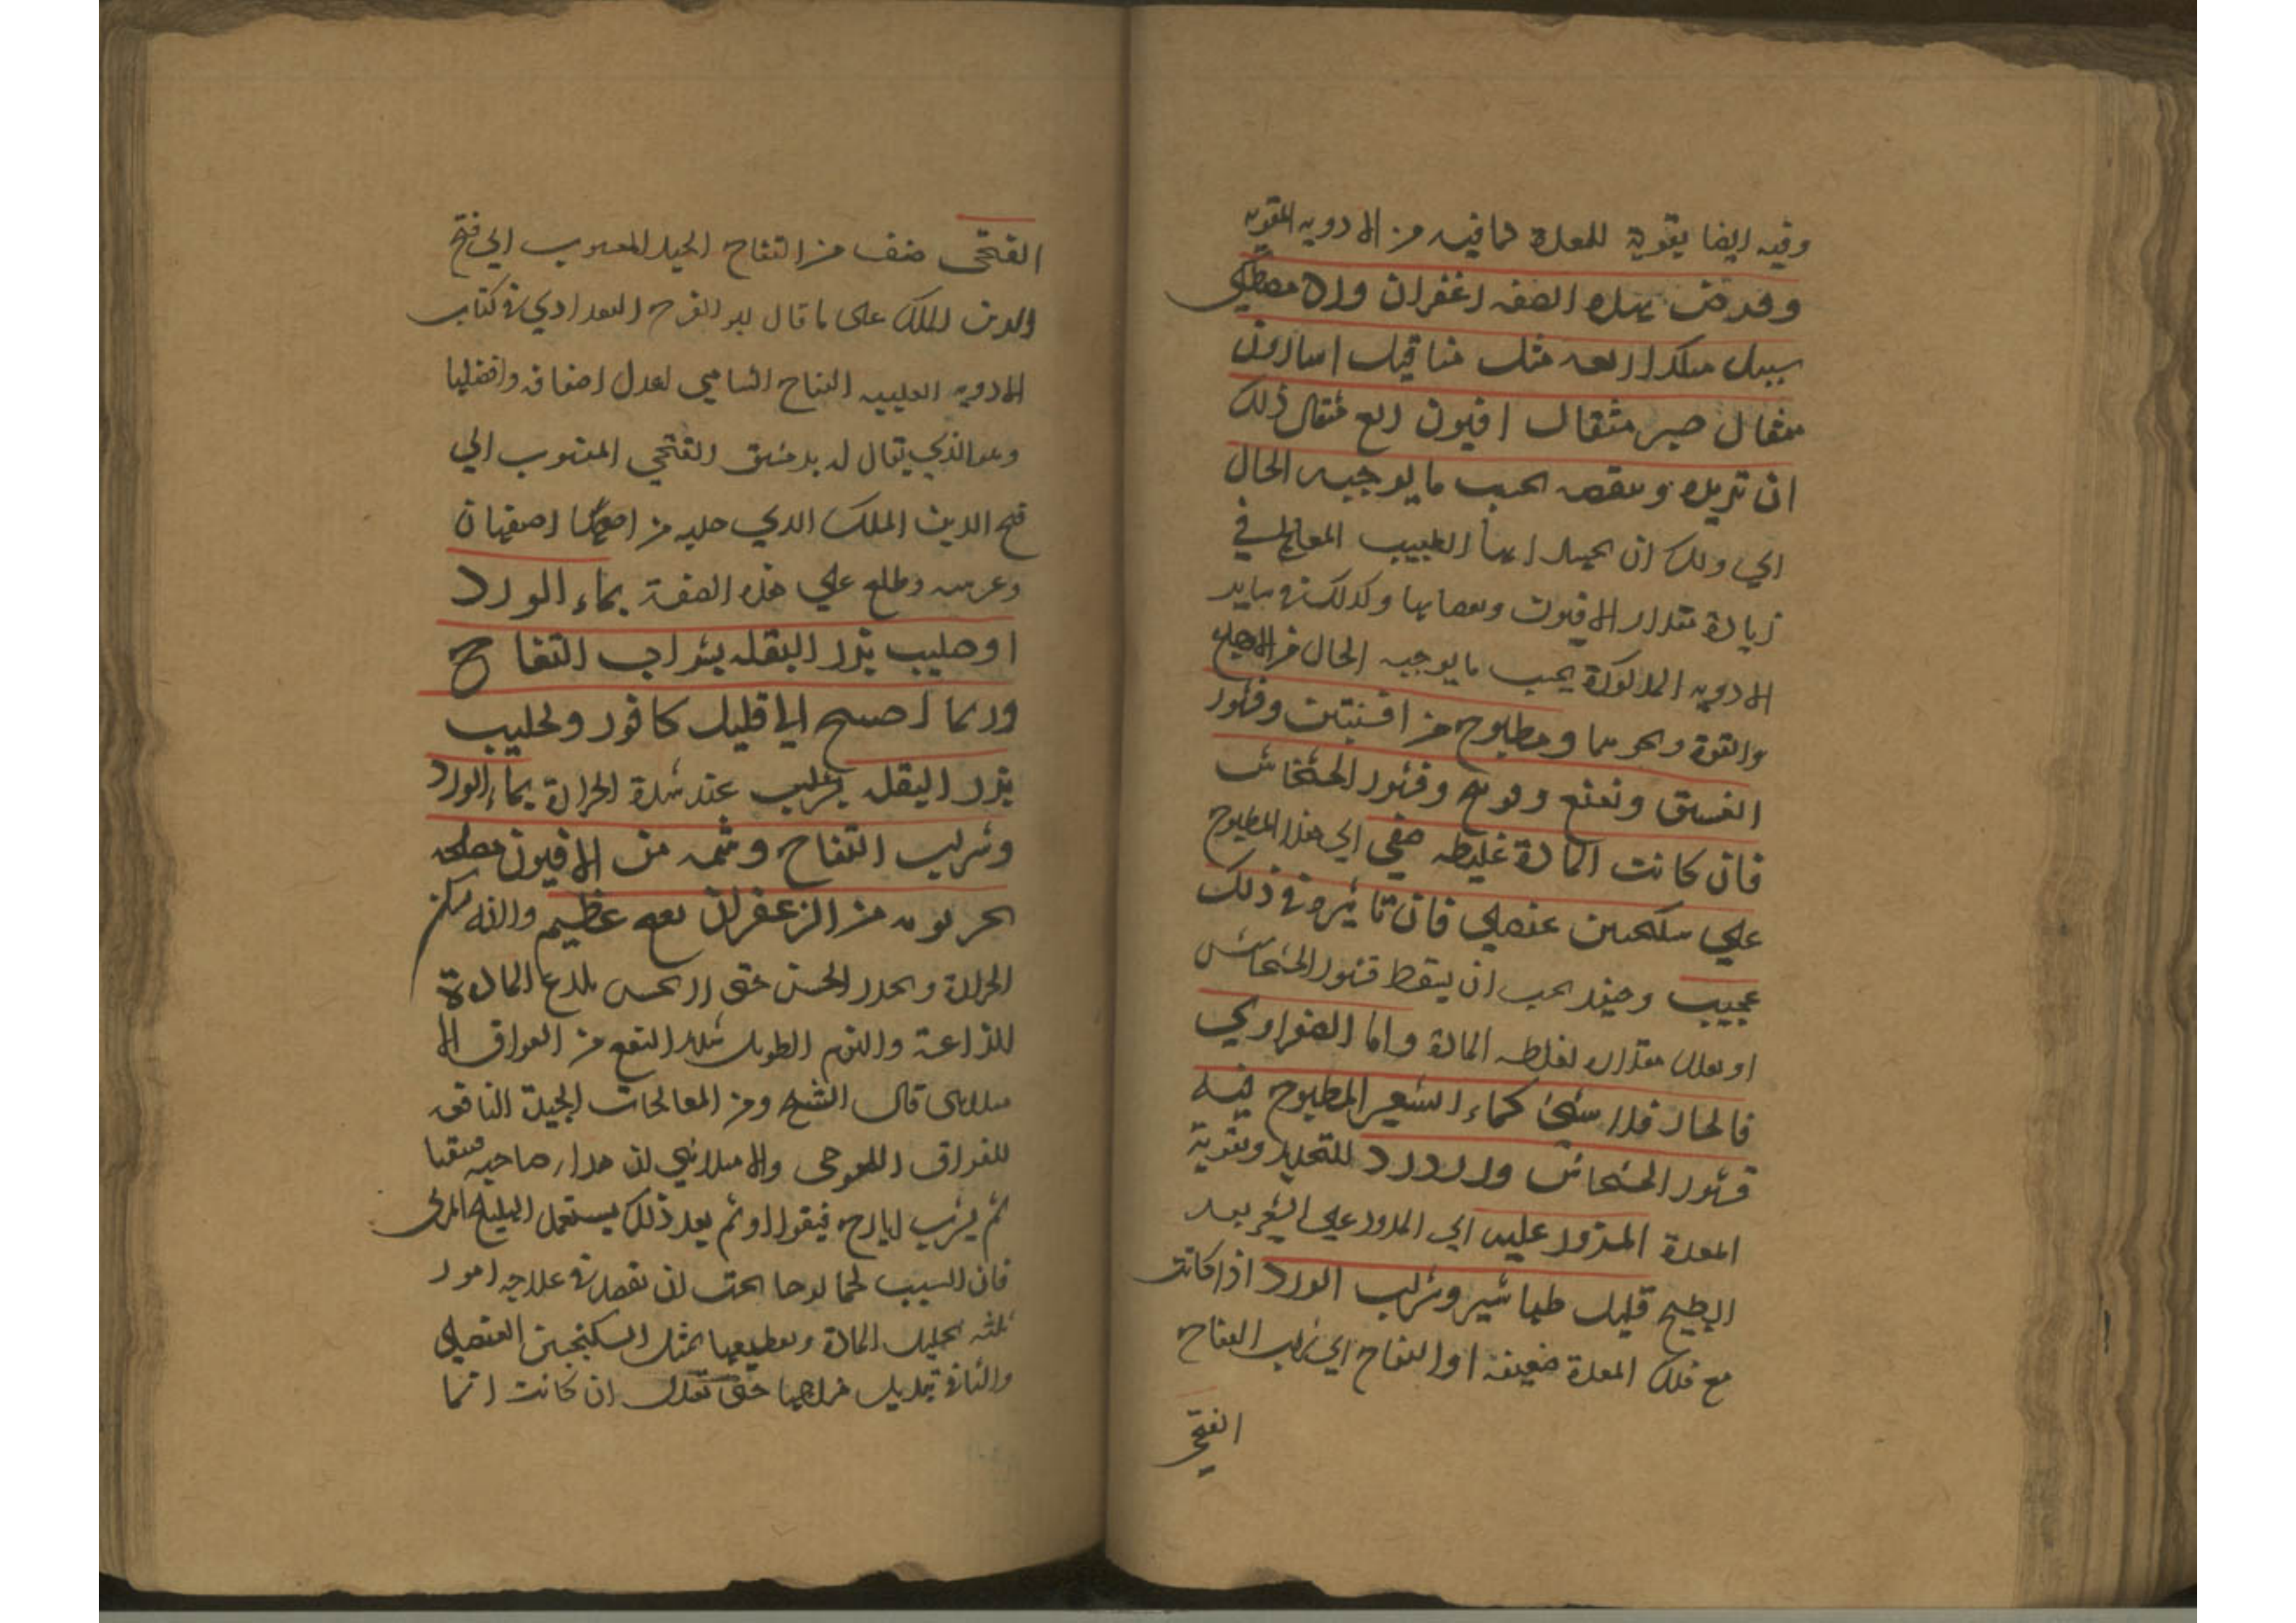 وفيه ايضا تقوية للمعدة لما فيه من الادويه المقويه
وقرص بهذه الصفه زعفران ورد مصطكي
سنبل هكذا اربعه مثاقيل اسارون
مثقال صبر مثقال افيون ربع مثقال ذلك
ان تزيده وتنقصه بحسب ما يوجبه الحال
اي ولك ان ايها الطبيب المعالج في
زيادة مقدار الافيون ونقصانها وكذلك في ساير
الادويه المذكورة بحسب ما يوجبه الحال من الاصلح
والقوة ومطبوخ من افسنتين وقشور
الفستق ونعنع وفوتنج وقشور الخشخاش
فان كانت المادة غليظه ضفي الي هذا المطبوخ
علي سكنجبين عنصلي فان تاثيره في ذلك
عجيب وحينئذ يجب ان يسقط قشور الخشخاش
او يعدل مقداره لغلظه المادة واما الصفراوي
فالحار فلا شئ كماء الشعير المطبوخ فيه
قشور الخشخاش وورد للتخدير وتقوية
المعدة المذرور عليه اي المذرور علي الشعير بعد
الطبخ قليل طباشير وشراب الورد اذا كانت
مع ذلك المعدة ضعيفة او التفاح اي شراب التفاح
الفتحي
الفتحي صنف من التفاح الجيد المنسوب الي فتح
الدين الملك علي ما قال ابو الفرح البغدادي في كتاب
الادويه القلبيه التفاح الشامي اعدل اصنافه وافضلها
وهو الذي يقال له بدمشق الفتحي المنسوب الي
فتح الدين الملك الذي جلبه من اصفهان
وغرسه وطلع علي هذه الصفة بماء الورد
او حليب بزر البقله بشراب التفاح
وربما احتيج الي قليل كافور ولحليب
بزر البقله عند شدة الحرارة بماء الورد
وشراب التفاح وشمه من الافيون مصلحه
من الزعفران نفعه عظيم والله يسكن
الحرارة ويخدر الحس حتي لا يحس بلدغ المادة
اللذاعة والنوم الطويل شديد النفع من الفواق الا
متلائي قال الشيخ ومن المعالجات الجيدة النافعه
للفواق اللحوحي والامتلائي ان صاحبه
ثم يشرب ايارج فيقرا وثم بعد ذلك يستعمل الهليلج المربي
فان السبب لحما لزجا يجب ان تقصد في علاجه امور
ثلثه تحليل المادة وتقطيعها بمثل السكنجبين العنصلي
والثاني تبديل مزاجها حتي تعدل ان كانت انما